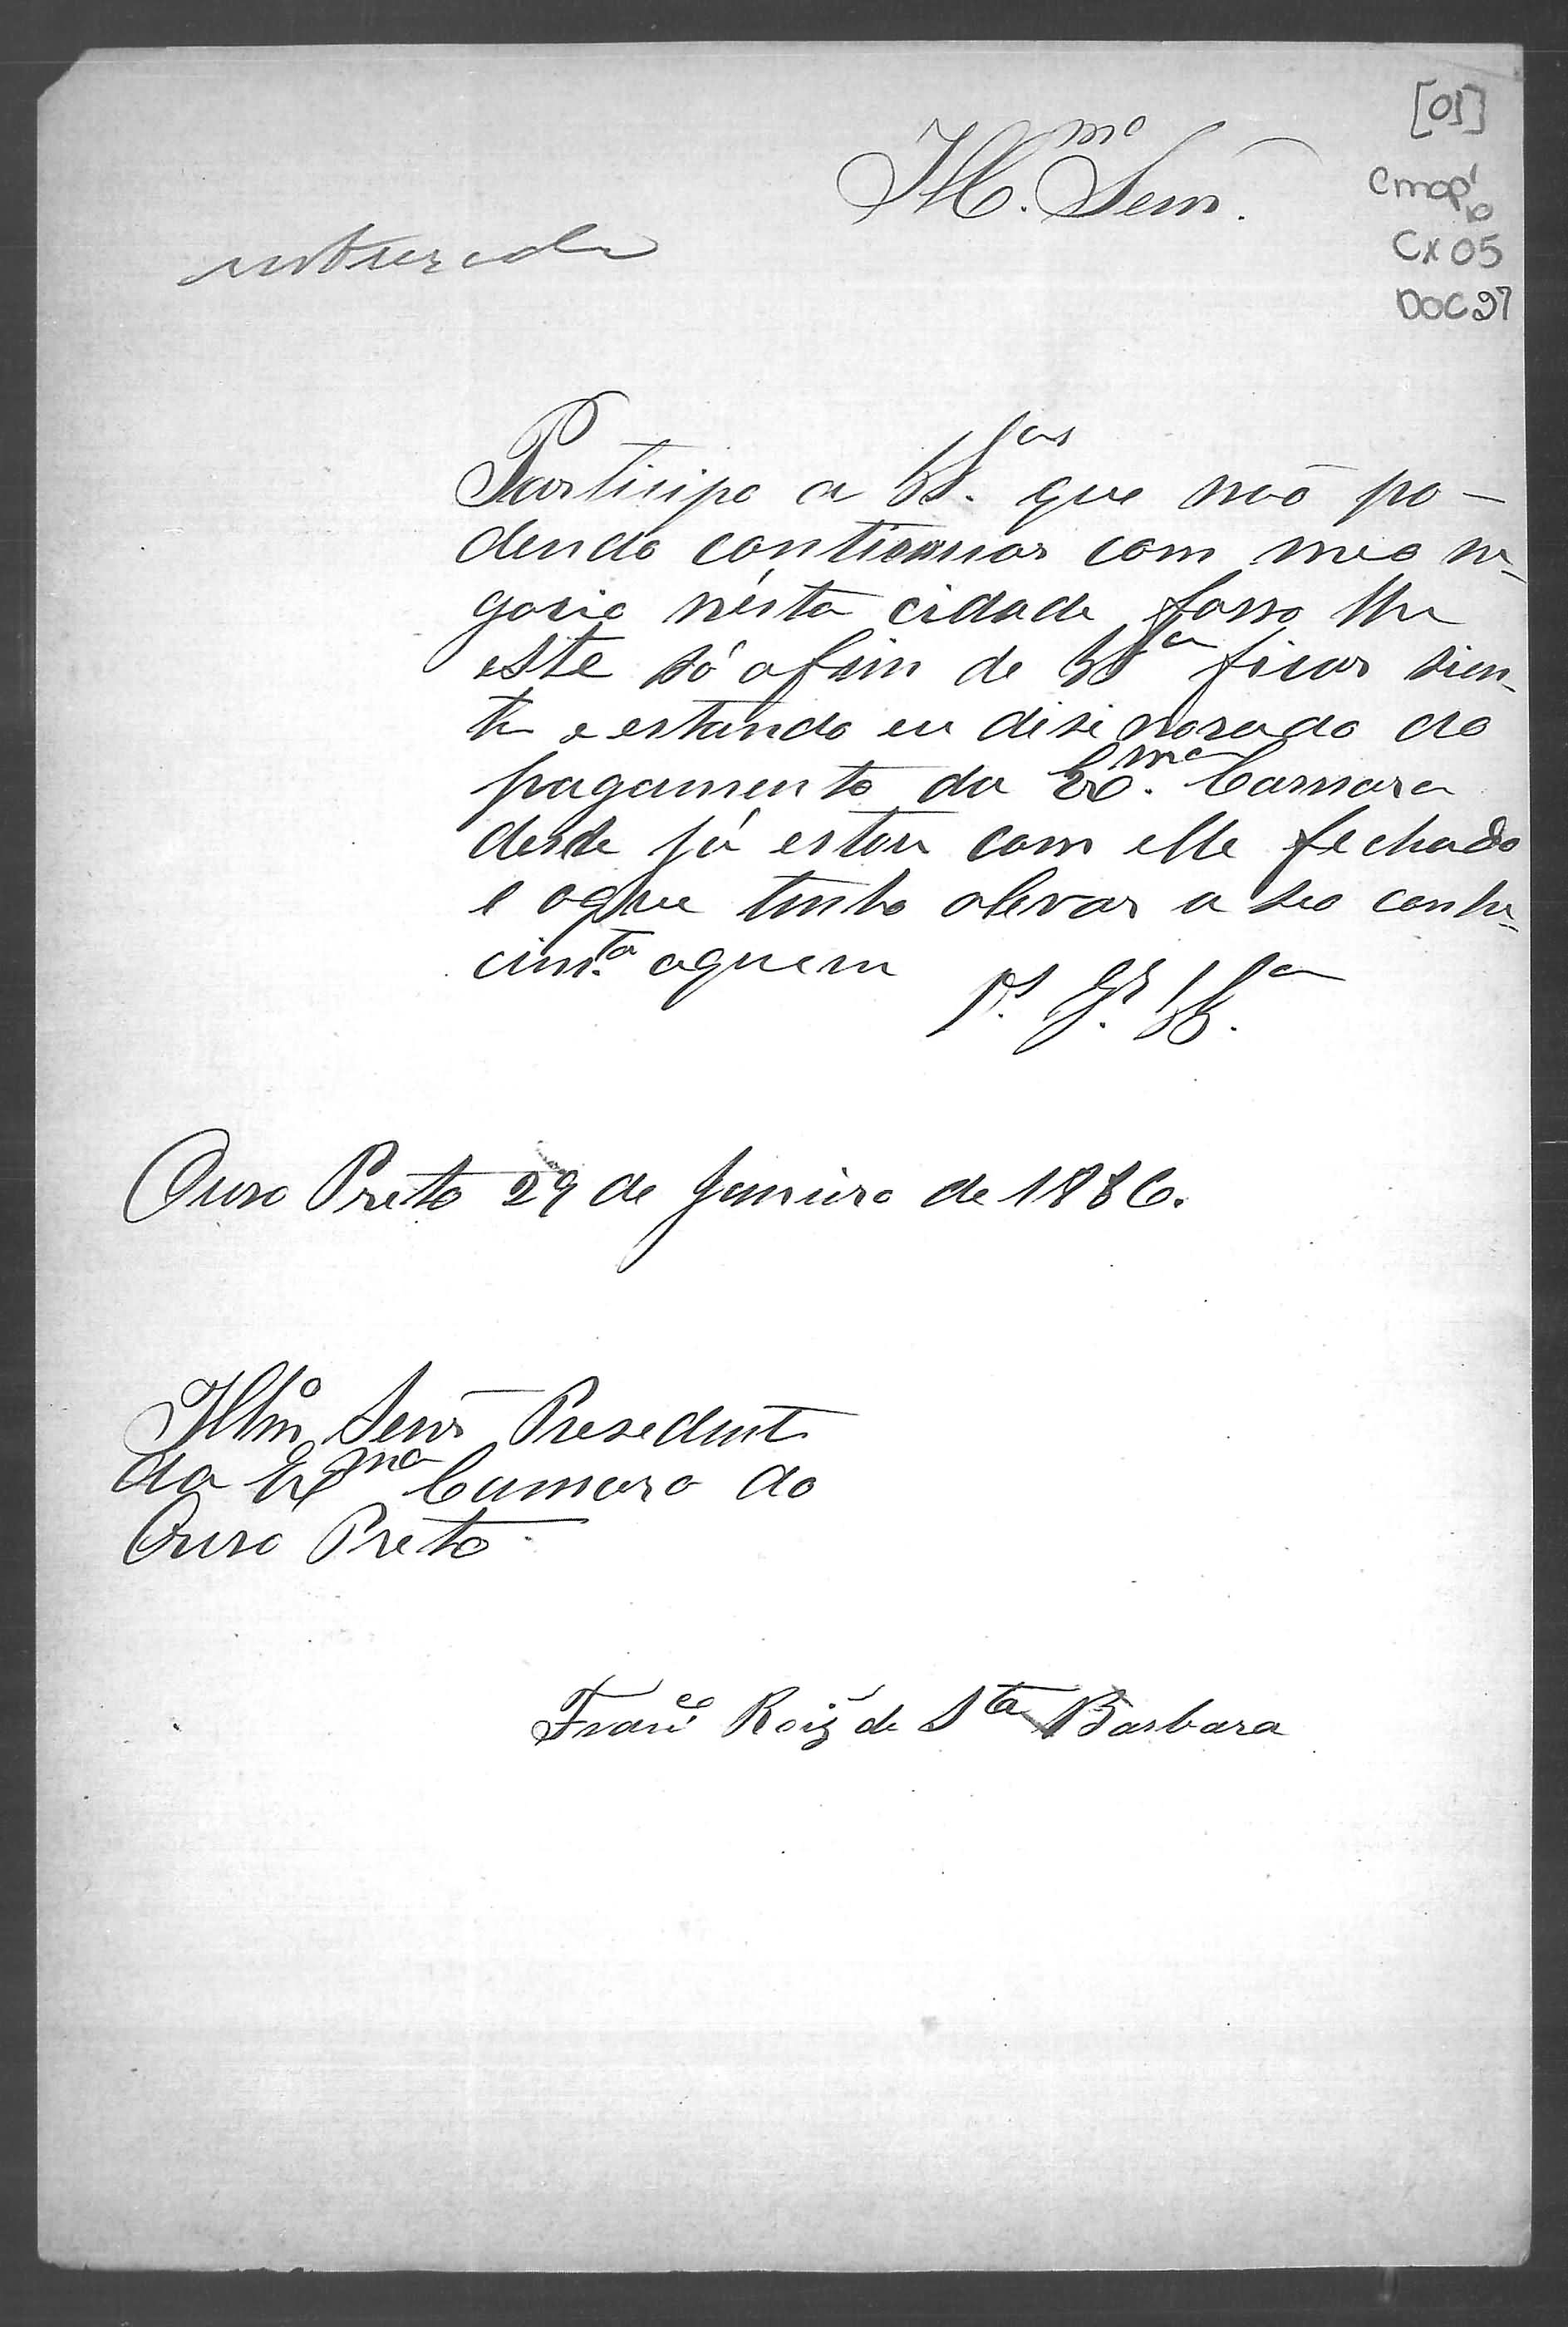 [01]
CMOP
10
CX 05
DOC 27
Ill.mo Senr.
Participo a VS.as que não po-
dendo continuar com meo ne-
gocio nésta cidade fasso lhe
este só afim de VSa ficar sien-
te e estando eu disi norado do
pagamento da Ex.ma Camara
desde já estou com elle fechado
e oque tinho alevar a seo conhe-
cim.to aquem
Ds. Ge. VS.a
Ouro Preto 29 de Janeiro de 1886.
Illmo Senr Presedente
da Exma Camara do
Ouro Preto
Franco Roiz de Sta Barbara